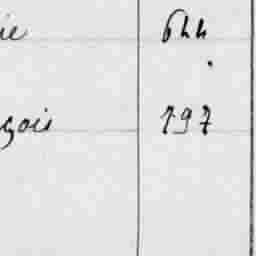 ie 644
çois 197